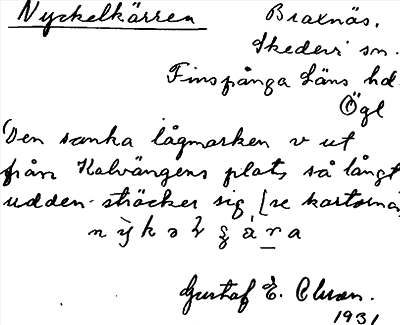 Nyckelkärren Braxnäs.
Skedevi sn.
Finspånga läns hd.
Ögl
Den sanka lågmarken v ut
från Kalvängens plats, så långt
udden sträcker sig [se kartorna
Gustaf E.
1931